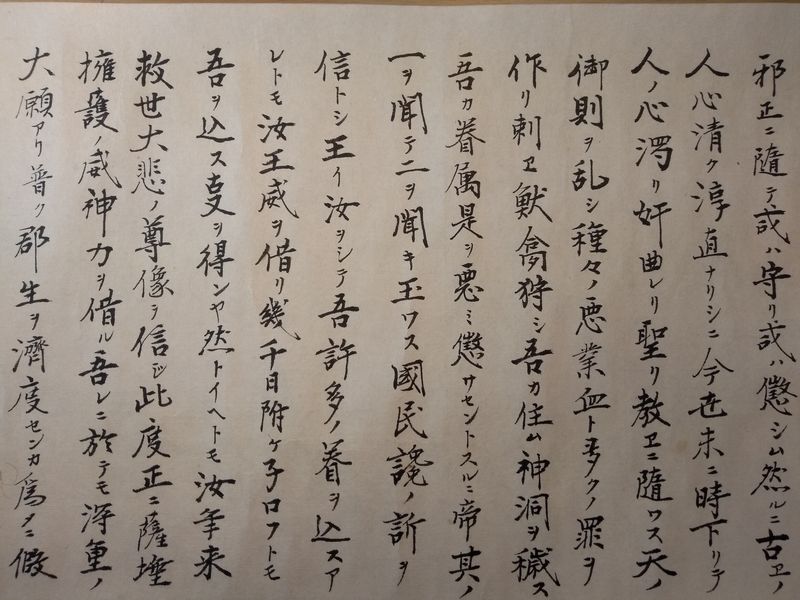 邪正ニ隨テ或ハ守リ或ハ懲シム然ルニ古ヱノ
人心清ク淳直ナリシニ今世末ニ時下リテ
人ノ心濁リ奸曲レリ聖リ教ヱニ隨ワス天ノ
御則ヲ乱シ種々ノ悪業血ト多クノ罪ヲ
作リ剌ヱ獣禽狩シ吾カ住ム神洞ヲ穢ス
吾カ眷属是ヲ悪ミ懲サセントスルニ帝其ノ
一ヲ聞テ二ヲ聞キ玉ワス國民讒ノ訴ヲ
信トシ王イ汝ヲシテ吾許多ノ眷ヲ込スア
レトモ汝王威ヲ借リ幾千日附ケ子ロフトモ
吾ヲ込ス叓ヲ得ンヤ然トイヘトモ汝年来
救世大悲ノ尊像テ信シ此度正ニ薩埵
擁護ノ威神力ヲ借ル吾レニ於テモ深重ノ
大願アリ普ク郡生ヲ濟度センカ為メニ假